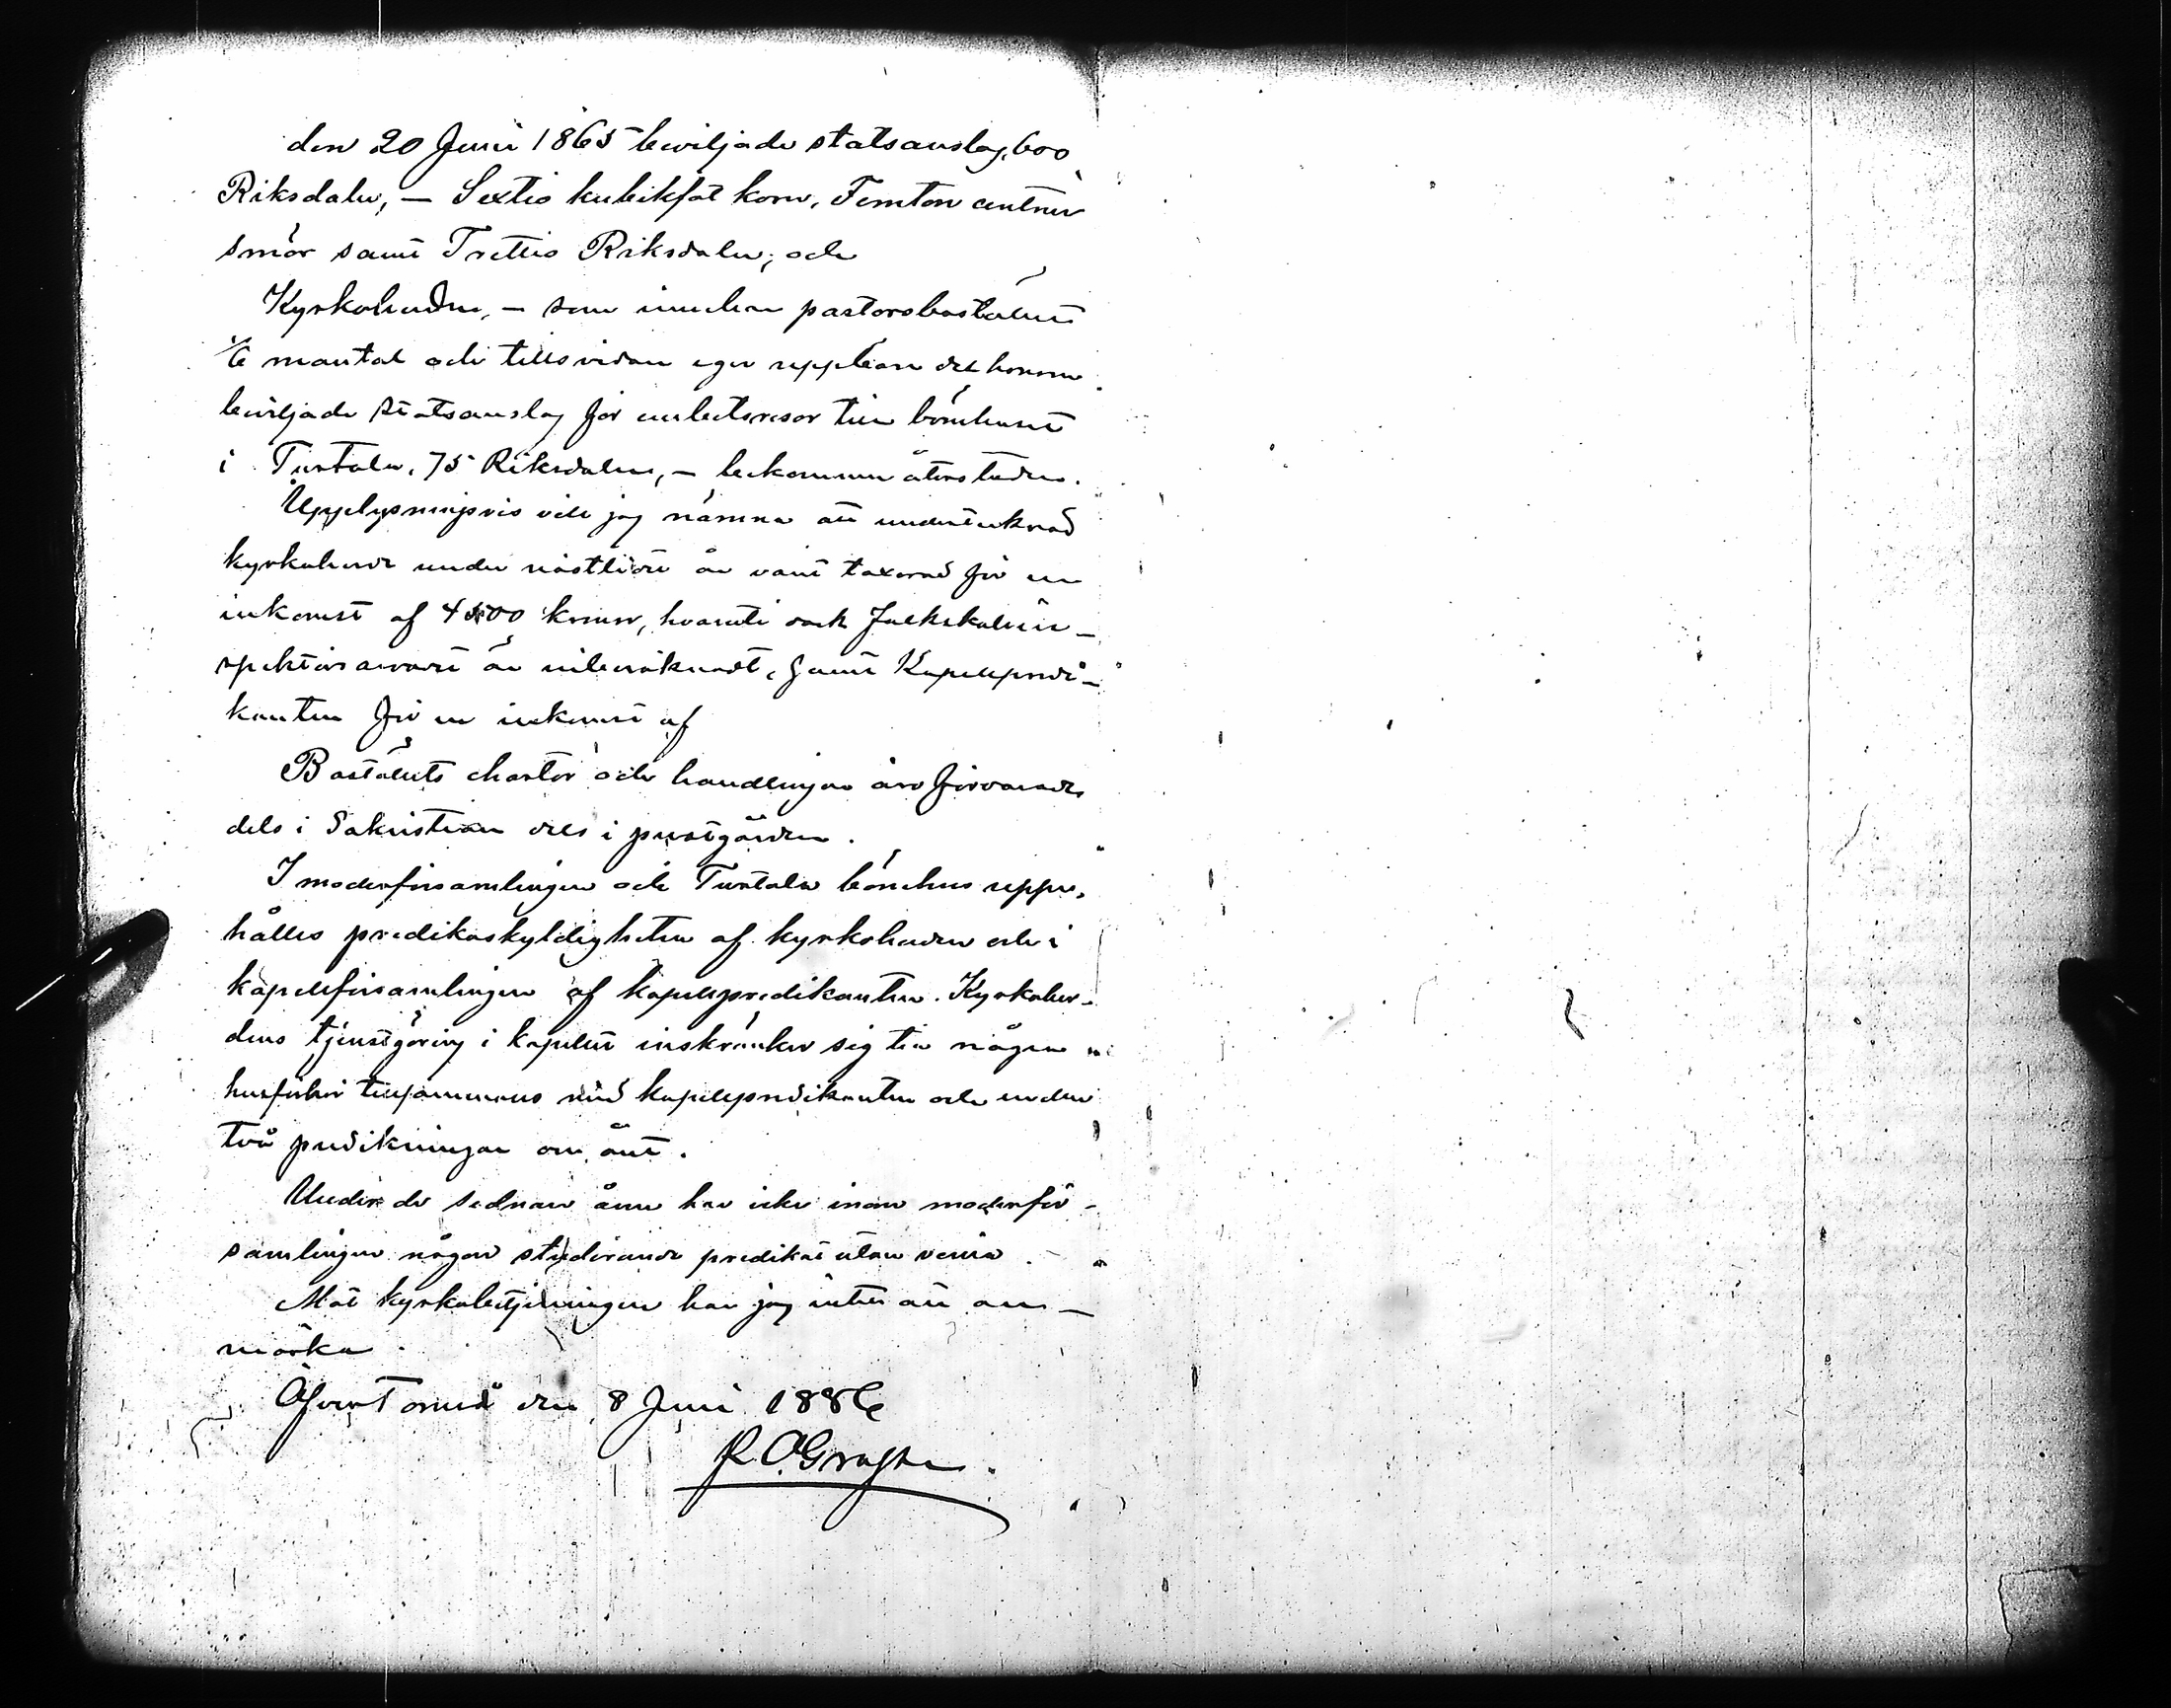 den 20 Juni 1865 beviljade statsanslag, 600
Riksdaler, — Sextio kubikfot korn, Femton centner
smör samt Trettio Riksdaler; och
Kyrkoherden, — som innehar pastorsbostället
mantal och tillsvidare eger uppbära det honom
beviljade statsanslag för embetsresor till bönehuset
i Turtola, 75 Riksdaler, — bekommer återstoden.
Upplysningsvis vill jag nämna att undertecknad
kyrkoherde under nästlidet år varit taxerad för en
inkomst af 4500 kronor, hvaruti ock Folkskolein-
spektörsarvodet är inberäknadt, samt Kapellpredi-
kanten för en inkomst af
Boställets chartor och handlingar äro förvarade
dels i Sakristian dels i prestgården.
I moderförsamlingen och Turtola bönehus uppe-
hålles predikoskyldigheten af kyrkoherden och i
kapellförsamlingen af kapellpredikanten. Kyrkoher-
dens tjenstgöring i kapellet inskränker sig till några
husförhör tillsammans med kapellpredikanten och en eller
två predikningar om året.
Under de sednare åren har icke inom moderför-
samlingen någon studerande predikat utan venia.
Mot kyrkobetjeningen har jag intet att an-
märka.
ÖfverTorneå den 8 Juni 1886